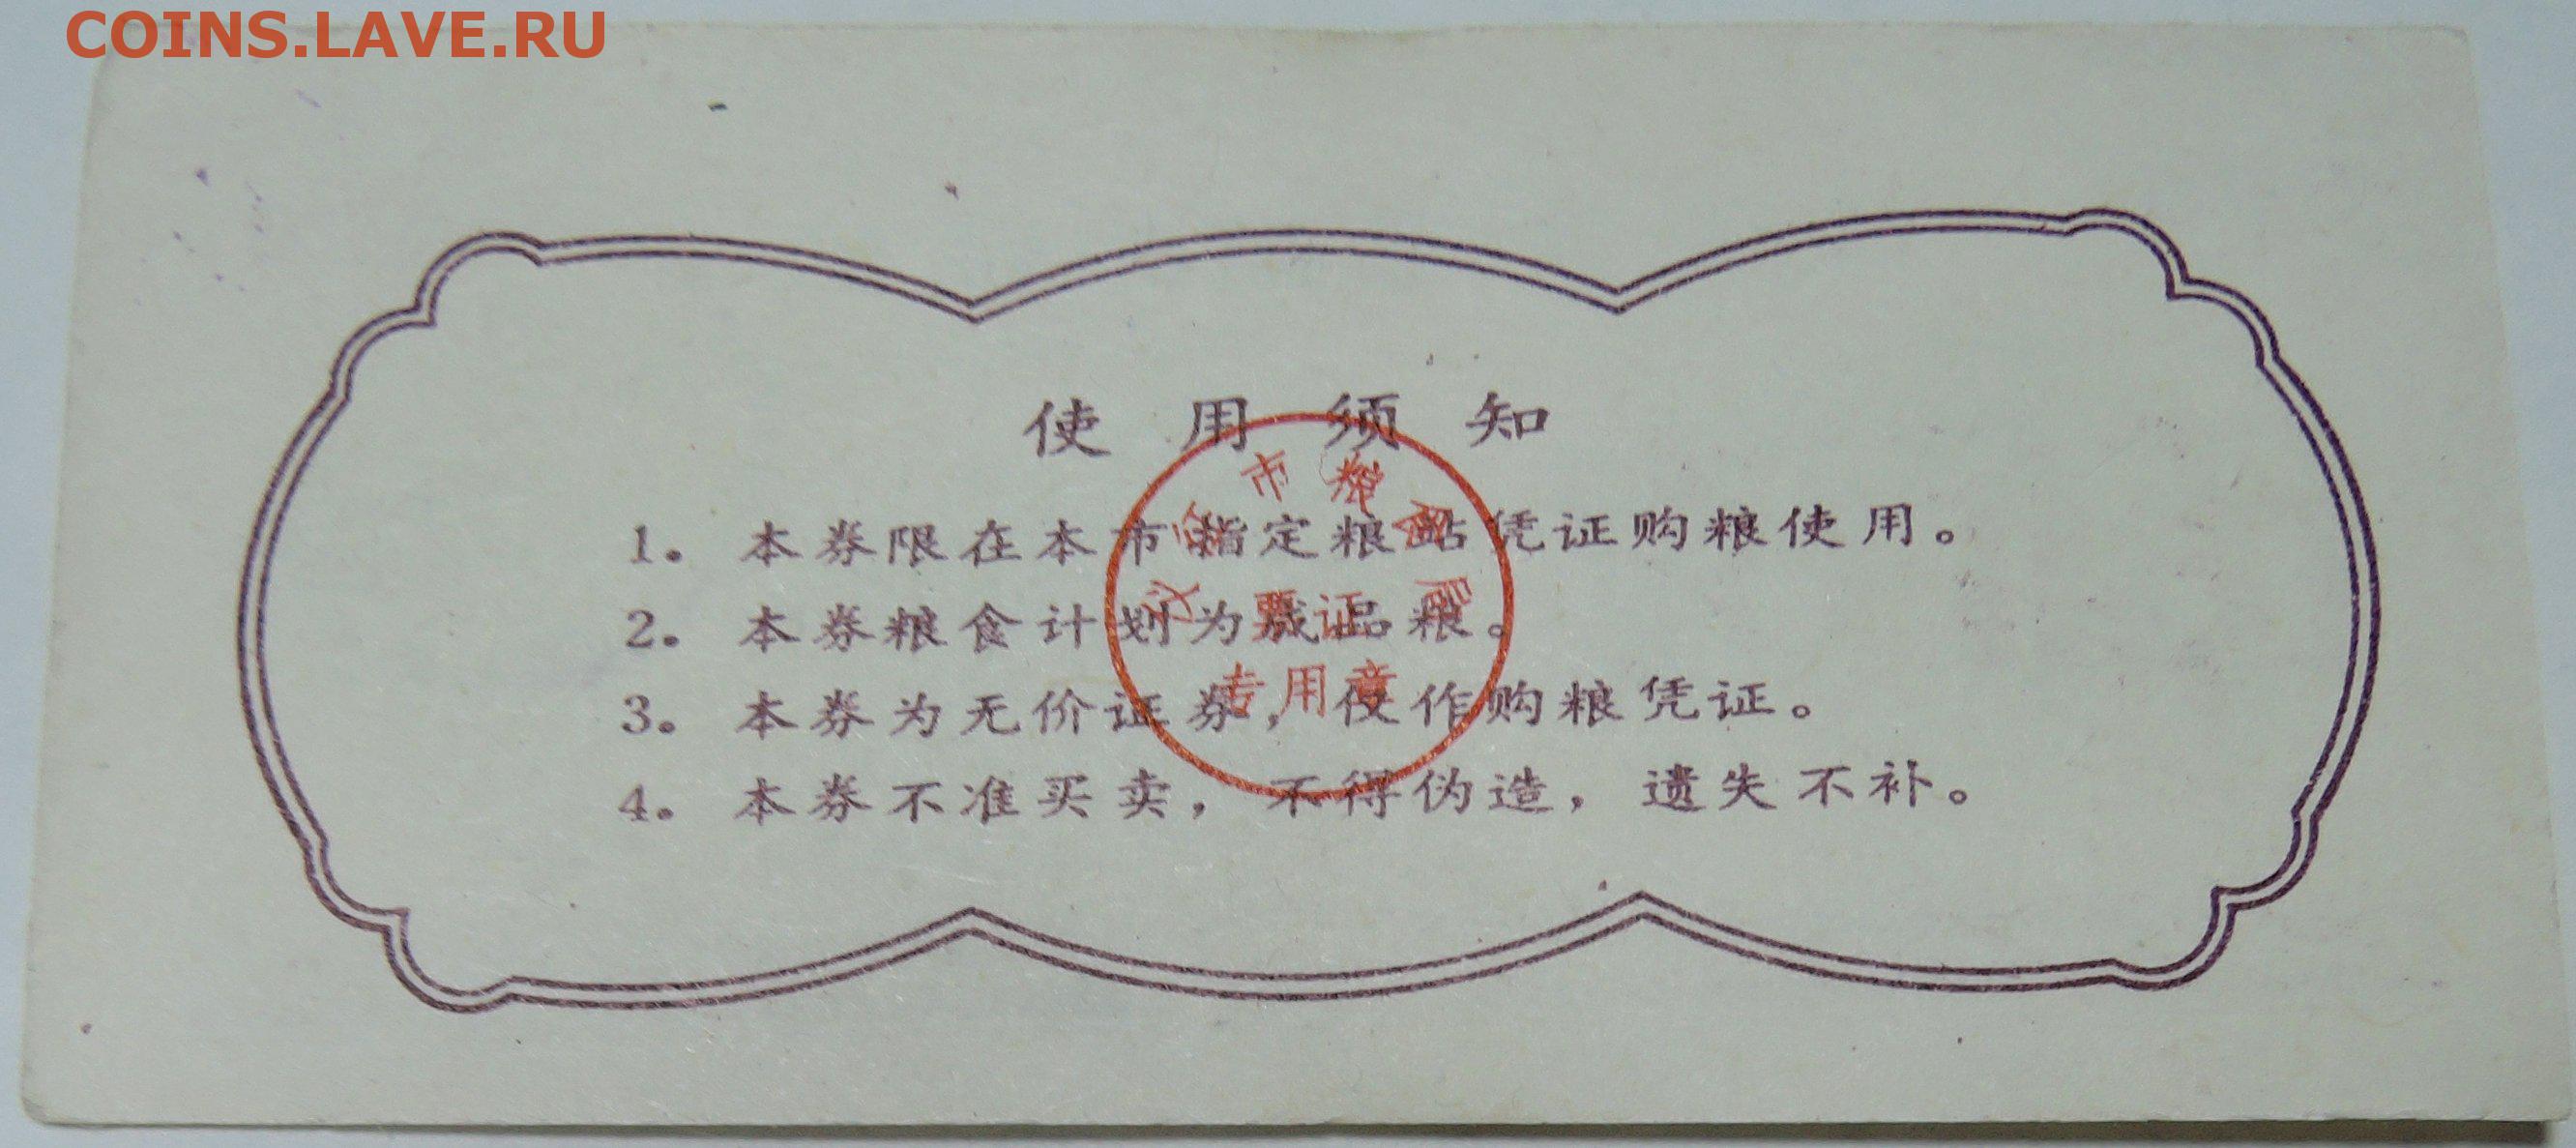 COINS.LAVE.RU
使用须知
1。本券限在本市指定粮站凭证购粮使用。
2。本券粮食计划为成品粮。
3。本券为无价证券,仅作购粮凭证。
4。本券不准买卖,不得伪造,遗失不补。
市粮食局
票证
专用章